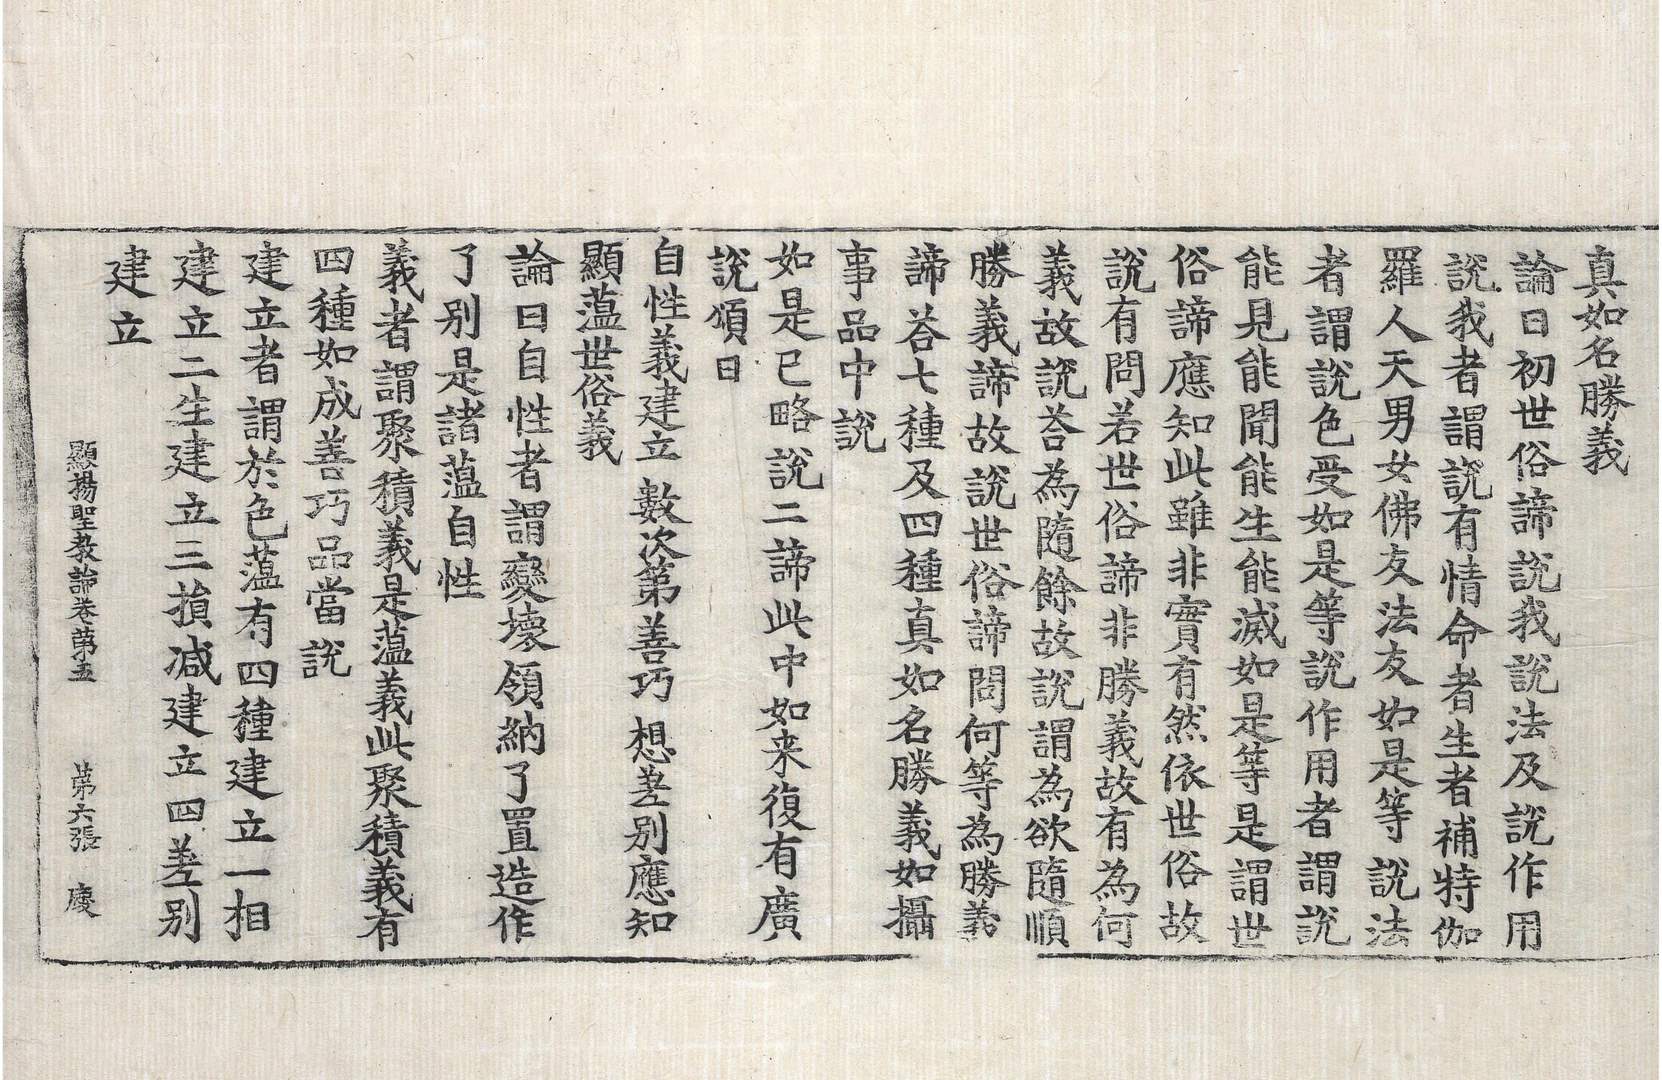 真如名勝義
論曰初世俗諦說我說法及說作用
說我者謂說有情命者生者補特伽
羅人天男女佛友法友如是等說法
者謂說色受如是等說作用者謂說
能見能聞能生能滅如是等是謂世
俗諦應知此雖非實有然依世俗故
說有問若世俗諦非勝義故有為何
義故說荅為隨餘故說謂為欲隨順
勝義諦故說世俗諦問何等為勝義
諦荅七種及四種真如名勝義如攝
事品中說
如是已略說二諦此中如来復有廣
說頌曰
自性義建立 數次第善巧 想差別應知
顯薀世俗義
論曰自性者謂變壞領納了置造作
了別是諸薀自性
義者謂聚積義是薀義此聚積義有
四種如成善巧品當說
建立者謂於色薀有四種建立一相
建立二生建立三損减建立四差别
建立
顯揚聖教論卷第五 第六張 慶